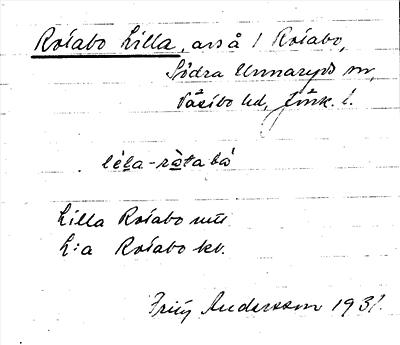 Rosabo Lilla, avs å 1 Rosabo,
Södra Unnaryds sn,
Västbo hd, Jönk. l.
lɩ̀la-ròsabó
Lilla Rosabo mtl
L:a Rosabo kv.
Fritz Andersson 1931.